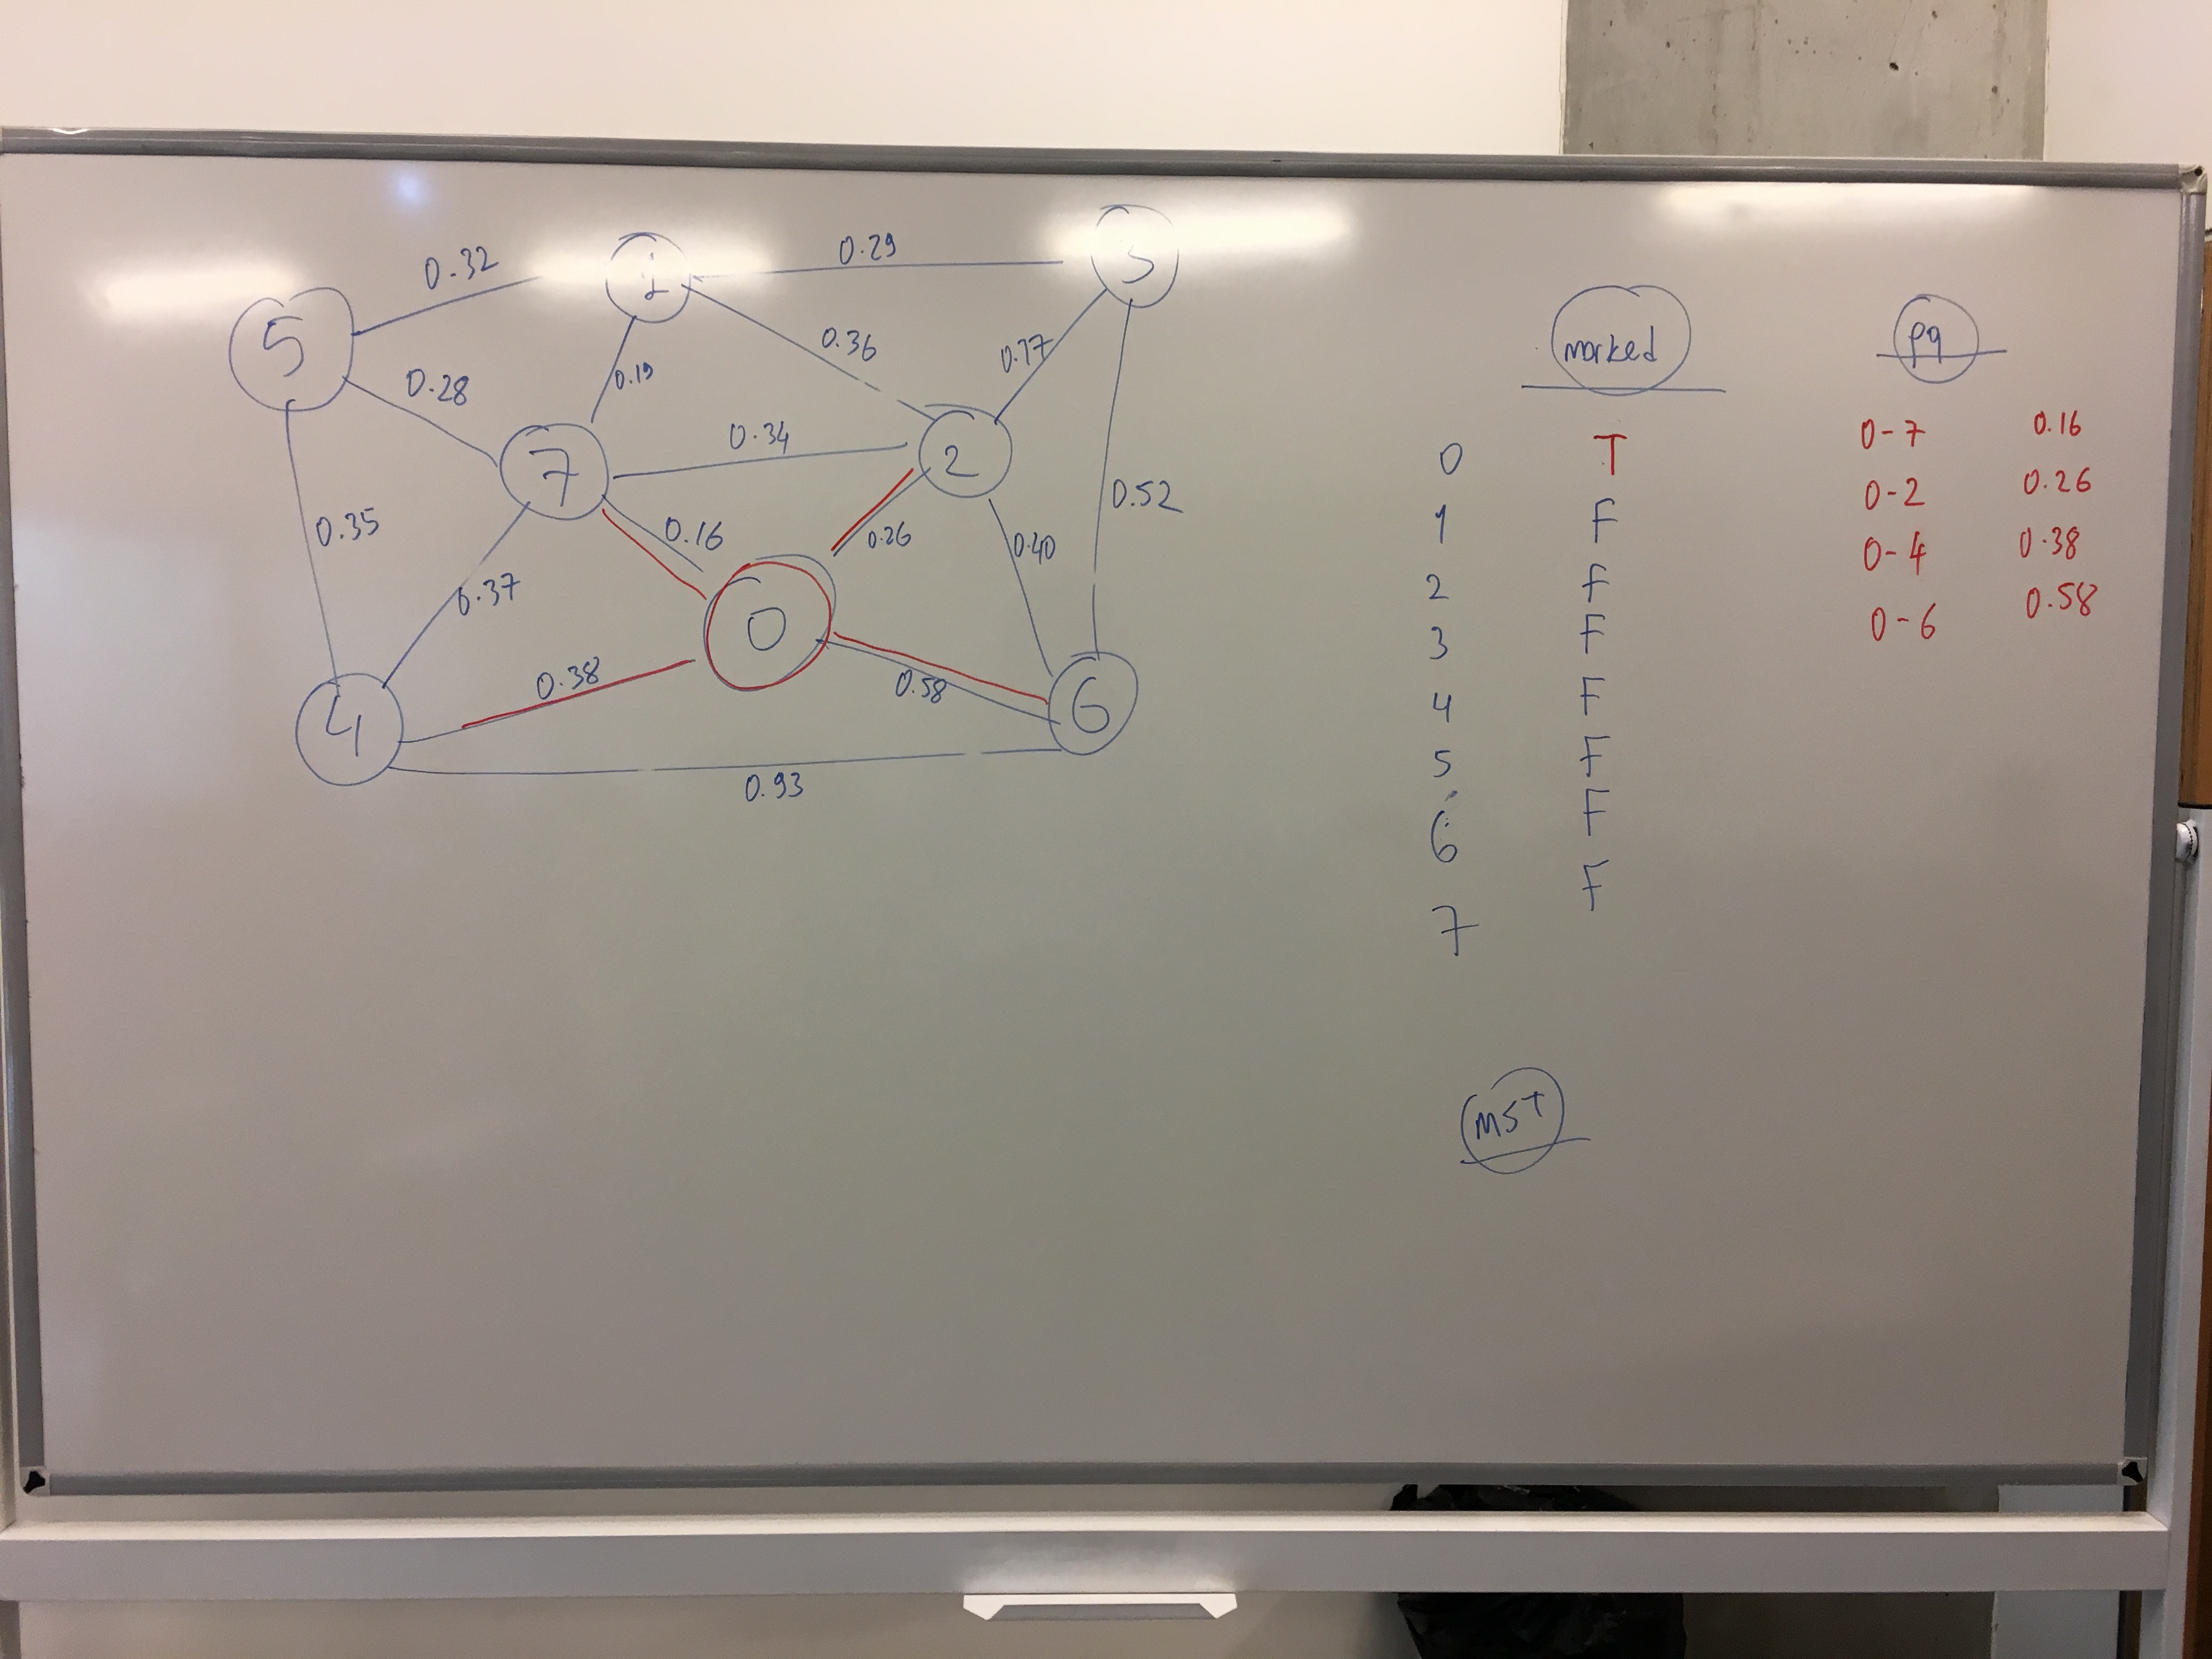 0.32
0.29
1
3
5
0.28
0.19
0.36
0.17
7
0.34
2
0.35
0.16
0.26
0.40
0.52
0.37
0
4
0.38
0.58
6
0.93
marked
0 T
1 F
2 F
3 F
4 F
5 F
6 F
7 F
pq
0-7 0.16
0-2 0.26
0-4 0.38
0-6 0.58
MST